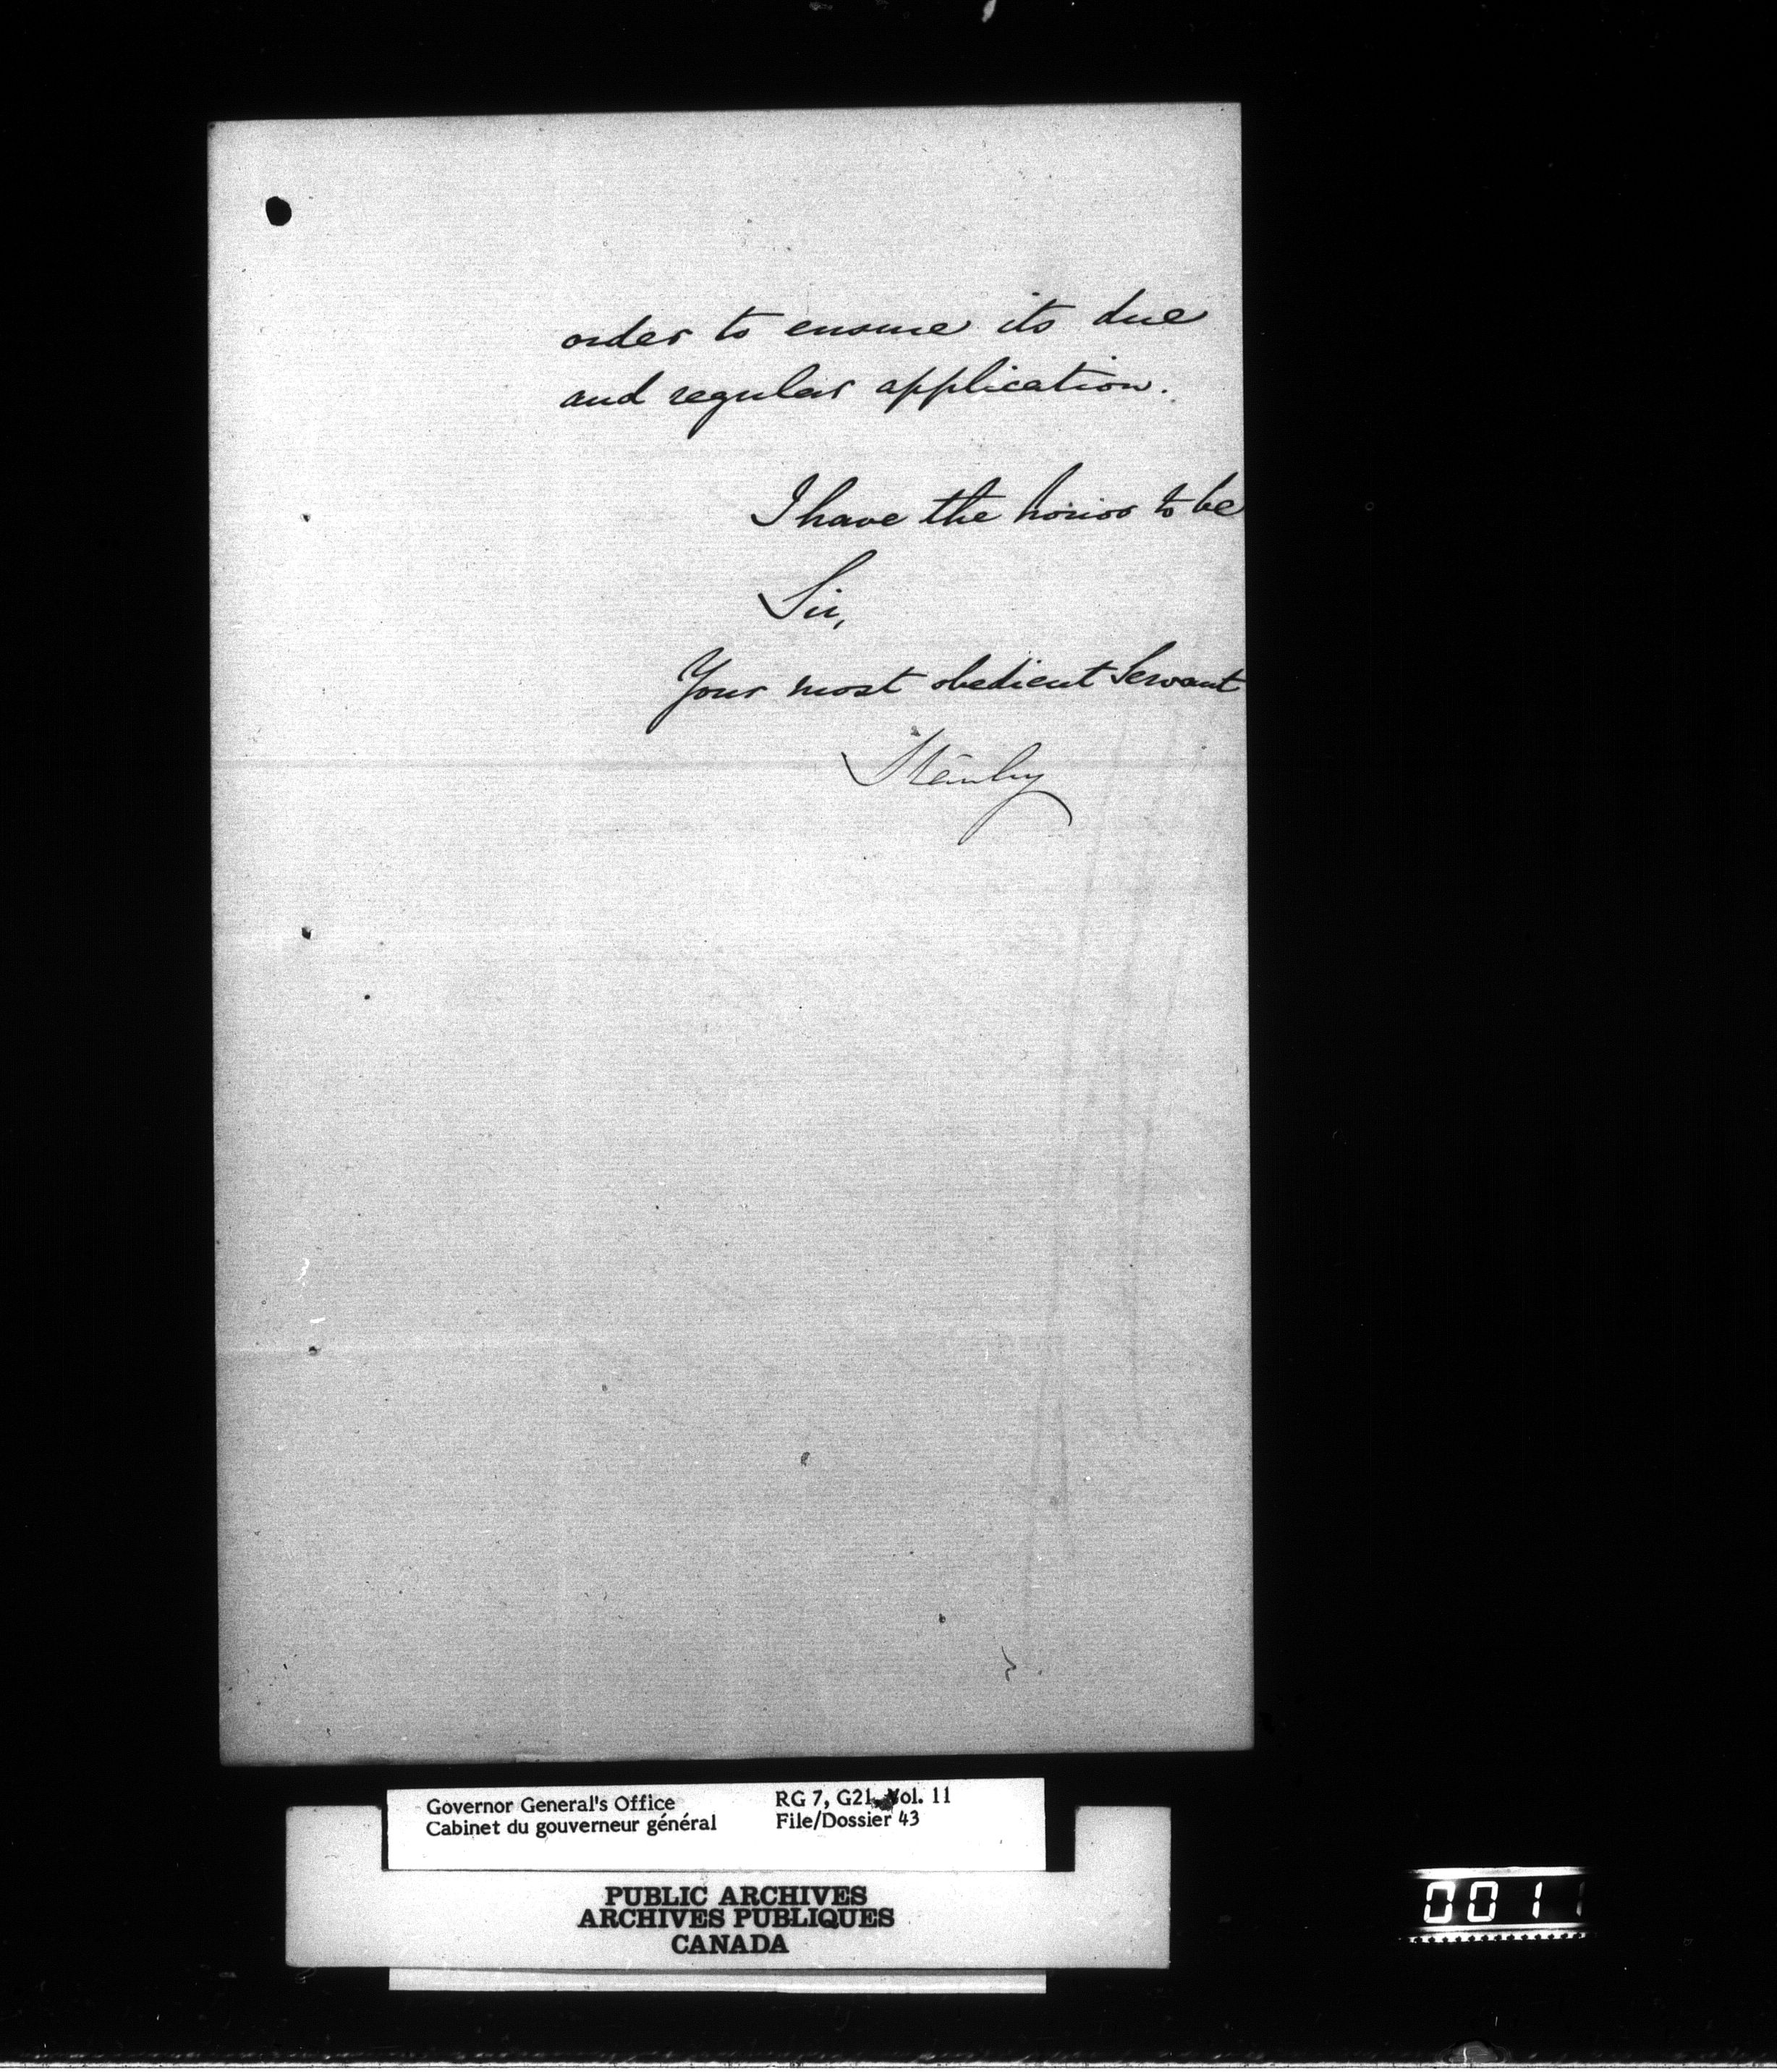 order to ensure its due
and regular application.
I have the honor to be
Sir,
Your most obedient Servant
Stanley
Governor General's Office
Cabinet du gouverneur général
RG 7, G21, Vol. 11
File/Dossier 43
PUBLIC ARCHIVES
ARCHIVES PUBLIQUES
CANADA
0011